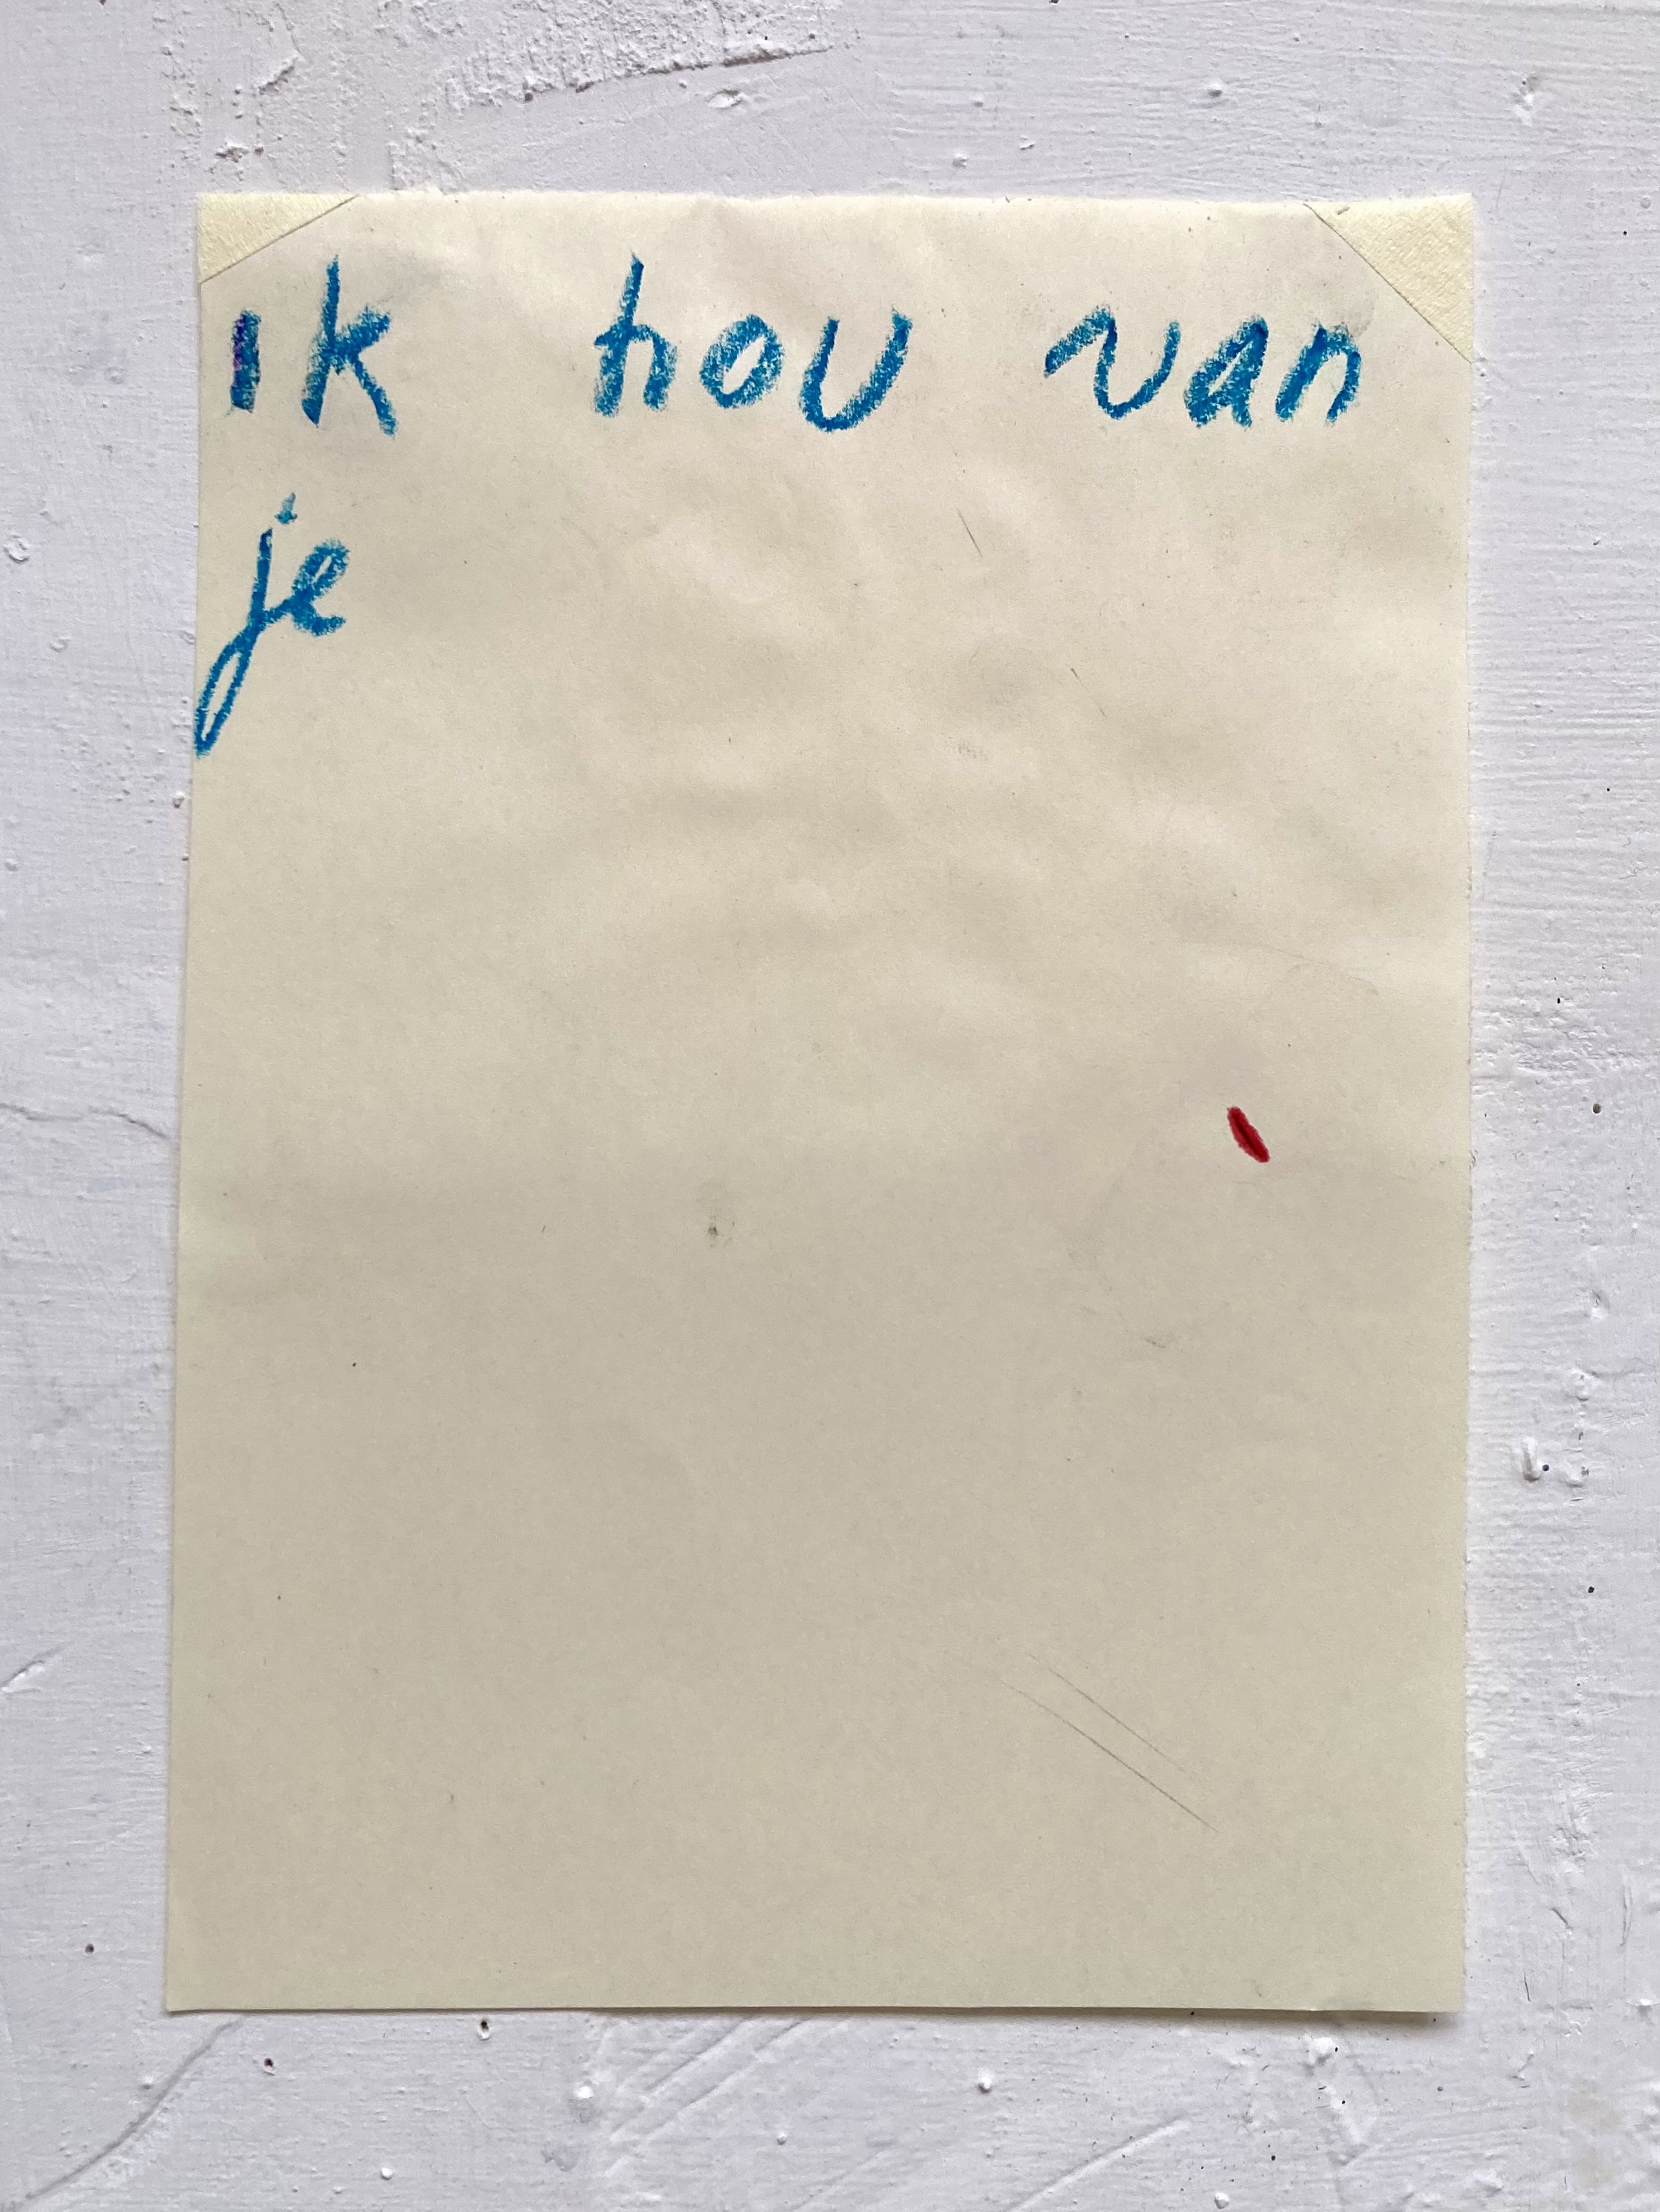 ik hou van
je